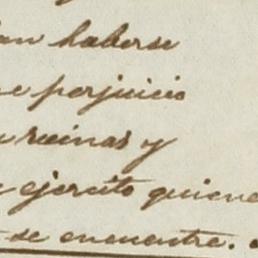 haberse
perjuicio
ruinas y
ejercito quiene
se encuentra.